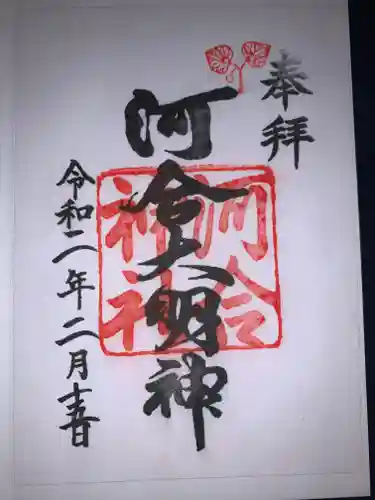 奉拝
河合大明神
河合
神社
令和二年二月 日